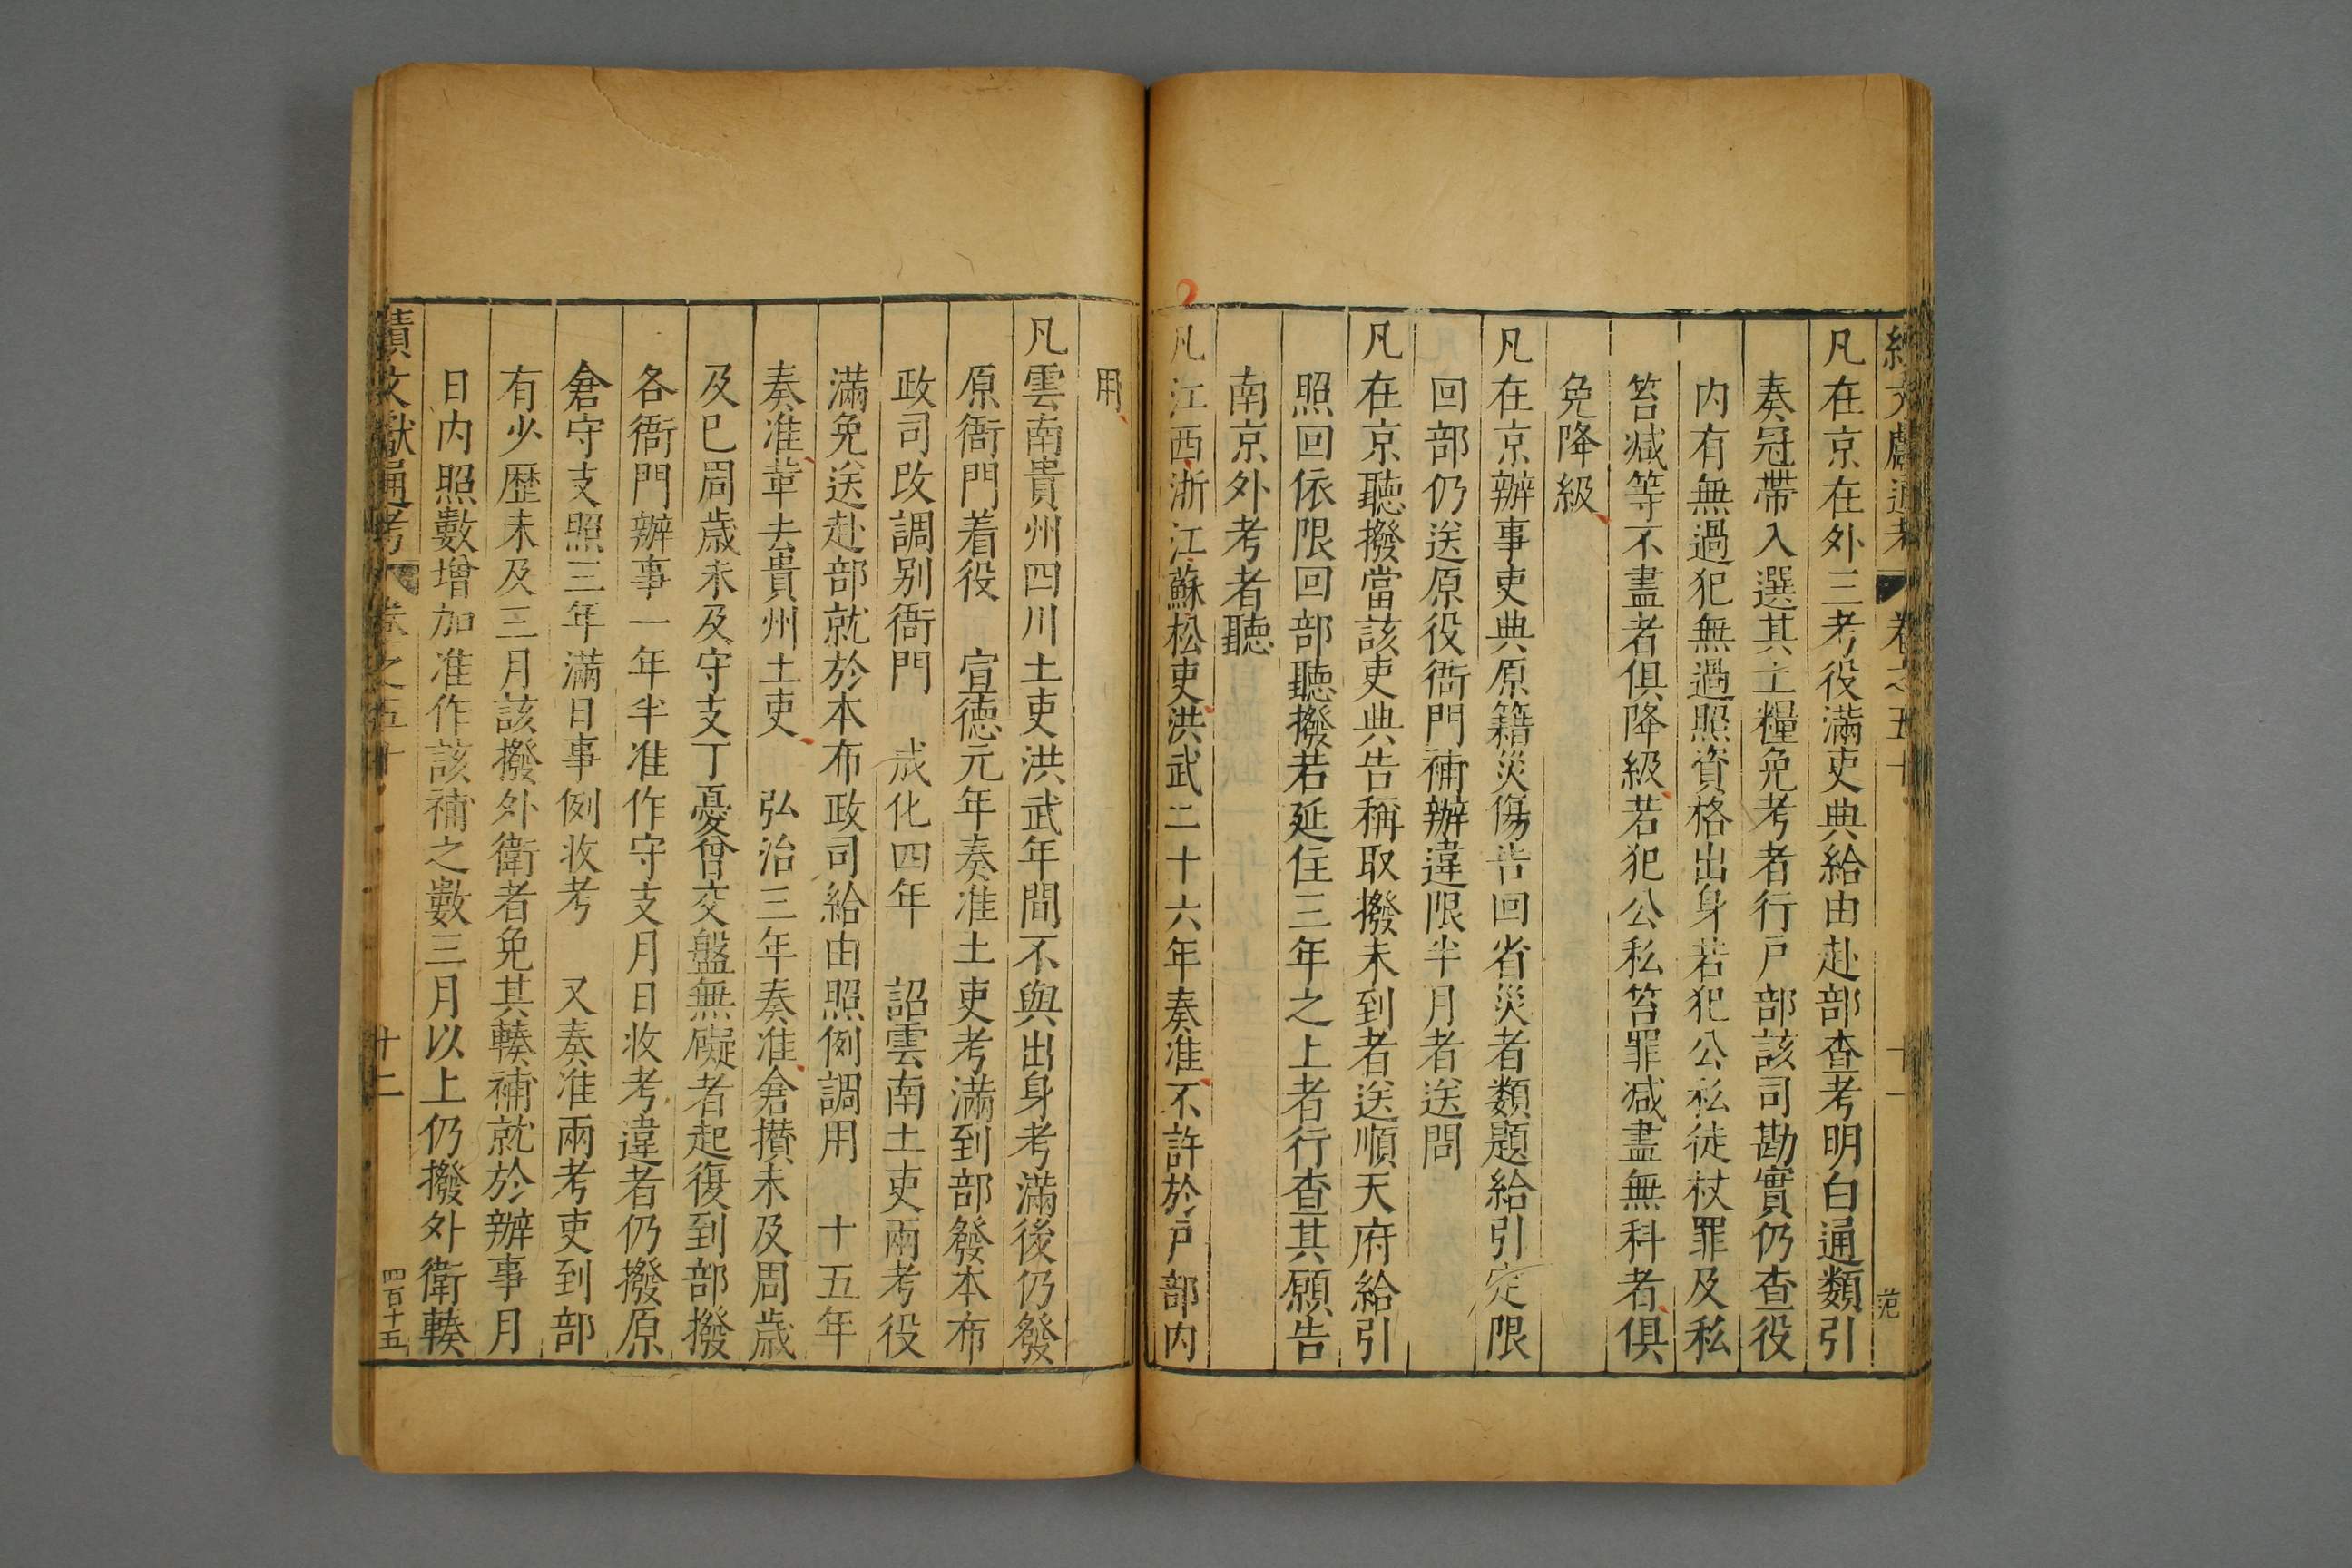 續文獻通考 卷之五十 十一 范
凡在京在外三考役滿吏典給由赴部查考明白通類引
奏冠帶入選其主糧免考者行戶部該司勘實仍查役
內有無過犯無過照資格出身若犯公私徒杖罪及私
笞減等不盡者俱降級若犯公私笞罪減盡無科者俱
免降級
凡在京辦事吏典原籍災傷告回省災者類題給引定限
回部仍送原役衙門補辦違限半月者送問
凡在京聽撥當該吏典告稱取撥未到者送順天府給引
照回依限回部聽撥若延住三年之上者行查其願告
南京外考者聽
凡江西浙江蘇松吏洪武二十六年奏准不許於戶部內
用
凡雲南貴州四川土吏洪武年間不與出身考滿後仍發
原衙門着役 宣德元年奏准土吏考滿到部發本布
政司改調別衙門 成化四年 詔雲南土吏兩考役
滿免送赴部就於本布政司給由照例調用 十五年
奏准革去貴州土吏 弘治三年奏准倉攢未及周歲
及已周歲未及守支丁憂曾交盤無礙者起復到部撥
各衙門辦事一年半准作守支月日收考違者仍撥原
倉守支照三年滿日事例收考 又奏准兩考吏到部
有少歷未及三月該撥外衛者免其輳補就於辦事月
日內照數增加准作該補之數三月以上仍撥外衛輳
續文獻通考 卷之五十 十二 四百十五